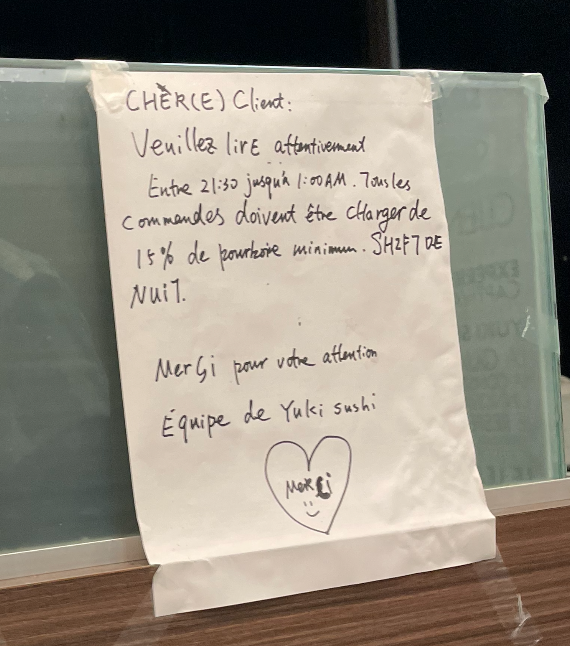 CHÈR(E) Client:
Veuillez lirE attentivement
Entre 21:30 jusqu'à 1:00AM. Tous les
commandes doivent être charger de
15% de pourboire minimum. SHIFT DE
NUIT.
Merçi pour votre attention
Équipe de Yuki sushi
Merci
CLIEN
EXPER
YUKI S